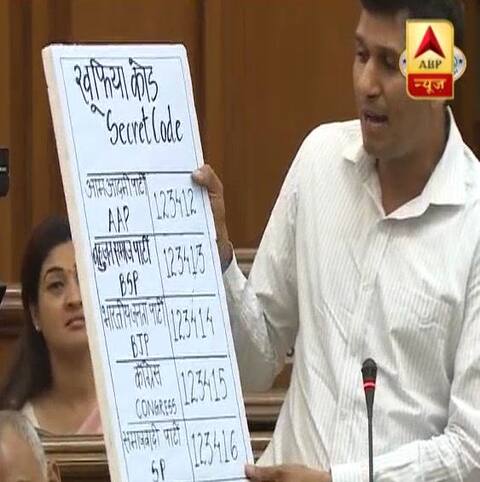 ABP
न्यूज़
खूफिया कोड
Secret Code
आम आदमी पार्टी
AAP
123412
बहुजन समाज पार्टी
BSP
123413
भारतीय जनता पार्टी
BJP
123414
कांग्रेस
CONGRESS
123415
समाजवादी पार्टी
SP
123416